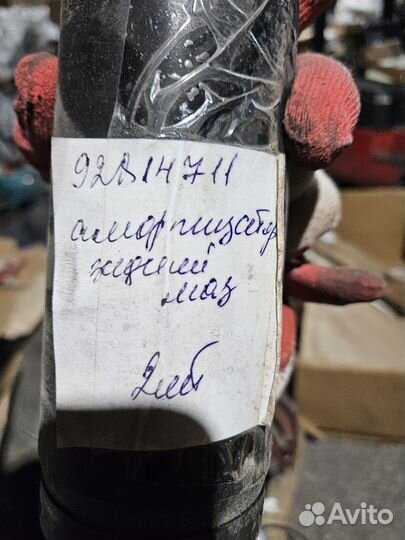 92814711
амортизатор
задний
маз
2шт
Avito